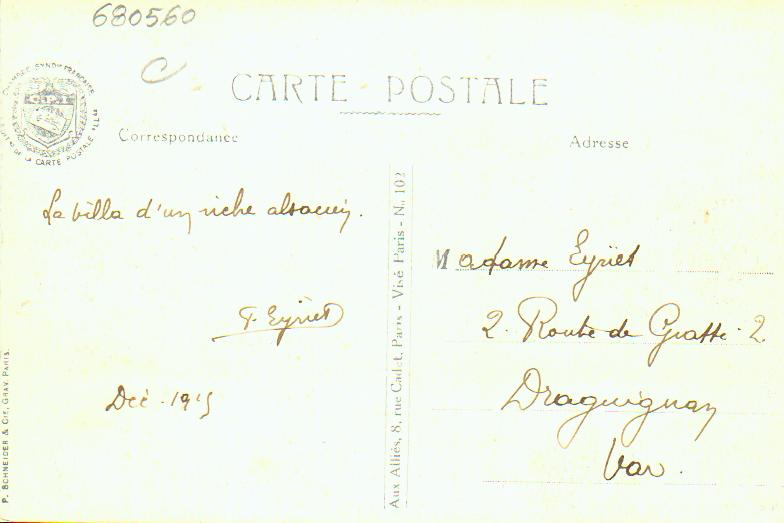 680560
C
CHAMBRE SYNDle FRANÇAISE
C.P.I
DE LA CARTE POSTALE ILLée
CARTE POSTALE
Correspondance
Adresse
La villa d'un riche alsacien.
F. Eyriet
Déc. 1915
Madame Eyriet
2. Route de Grasse. 2.
Draguignan
Var.
Aux Alliés, 8, rue Cadet, Paris - Visé Paris - N. 102
P. SCHNEIDER & CIE, GRAV. PARIS.